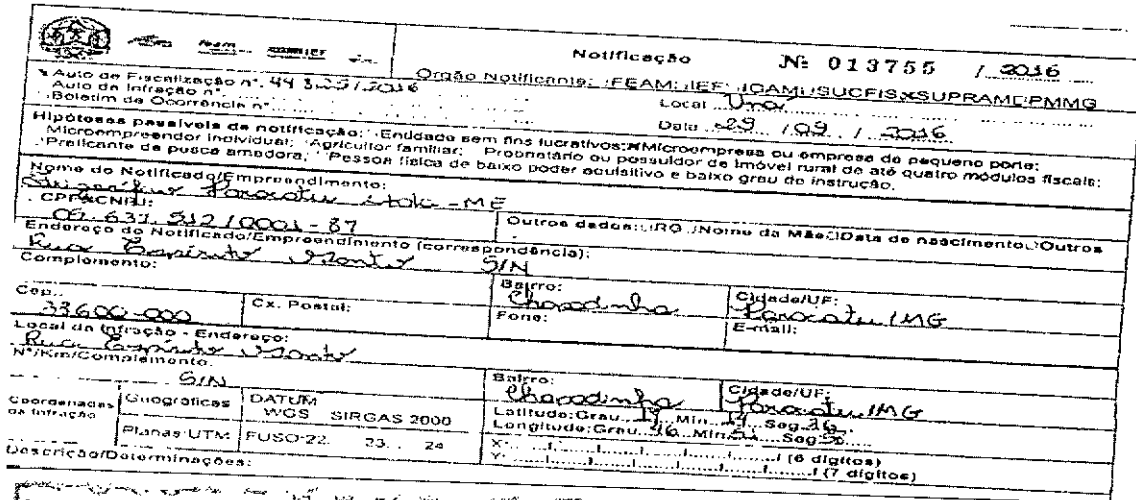 feam
Notificação Nº 013755 / 2016
Auto de Fiscalização nº. / 2016
Orgão Notificante: FEAM IEF IGAM SUCFIS X SUPRAM PMMG
Auto de Infração nº.
Local Unaí
Boletim de Ocorrência nº.
Data 29 / 09 / 2016
Hipóteses passíveis de notificação: Entidade sem fins lucrativos; X Microempresa ou empresa de pequeno porte;
Microempreendor individual; Agricultor familiar; Proprietário ou possuidor de imóvel rural de até quatro módulos fiscais;
Praticante de pesca amadora; Pessoa física de baixo poder aquisitivo e baixo grau de instrução.
Nome do Notificado/Empreendimento:
Paracatu Ltda - ME
CPF CNPJ:
Outros dados: RG Nome da Mãe Data de nascimento Outros
.631.512/0001-87
Endereço do Notificado/Empreendimento (correspondência):
Rua Espírito Santo S/N
Complemento:
Bairro: Chapadinha
Cidade/UF: Paracatu/MG
Cep.: 33600-000
Cx. Postal:
Fone:
E-mail:
Local da Infração - Endereço:
Rua Espírito Santo
Nº/Km/Complemento: S/N
Bairro: Chapadinha
Cidade/UF: Paracatu/MG
Coordenadas da Infração
Geográficas
DATUM
WGS SIRGAS 2000
Latitude: Grau 17 Min. 14 Seg. 36
Longitude: Grau 46 Min. Seg.
Planas UTM
FUSO 22 23 24
X: (6 dígitos)
Y: (7 dígitos)
Descrição/Determinações: